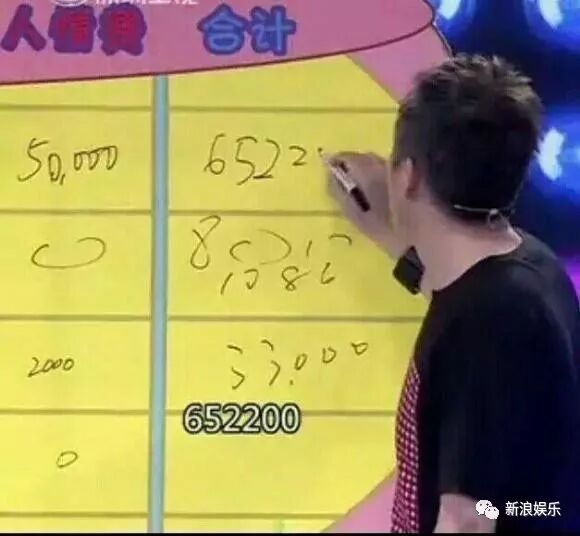 人情费 合计
50,000 6522
2000 33,000
652200
0
新浪娱乐